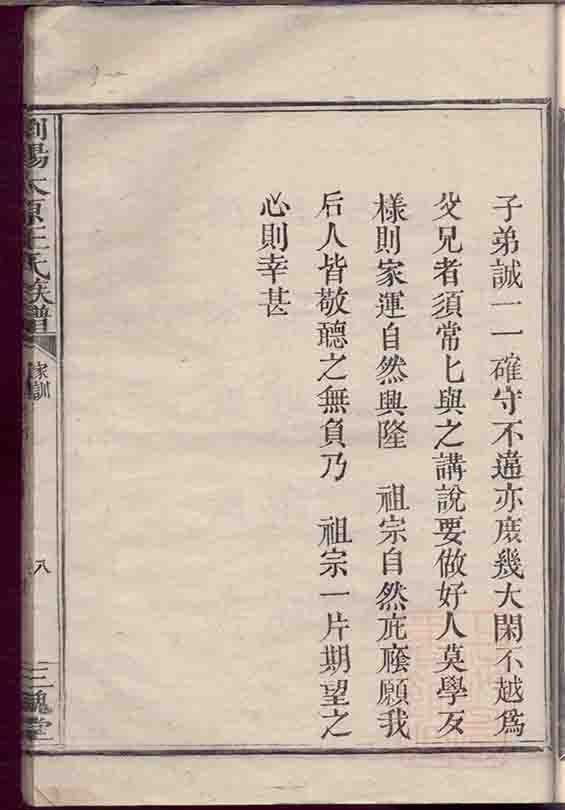 子弟誠一一確守不違亦庶幾大閑不越爲
父兄者須常匕與之講說要做好人莫學歹
樣則家運自然興隆 祖宗自然庇廕願我
后人皆敬聽之無負乃 祖宗一片期望之
心則幸甚
瀏陽太原王氏族譜
家訓
八
三槐堂